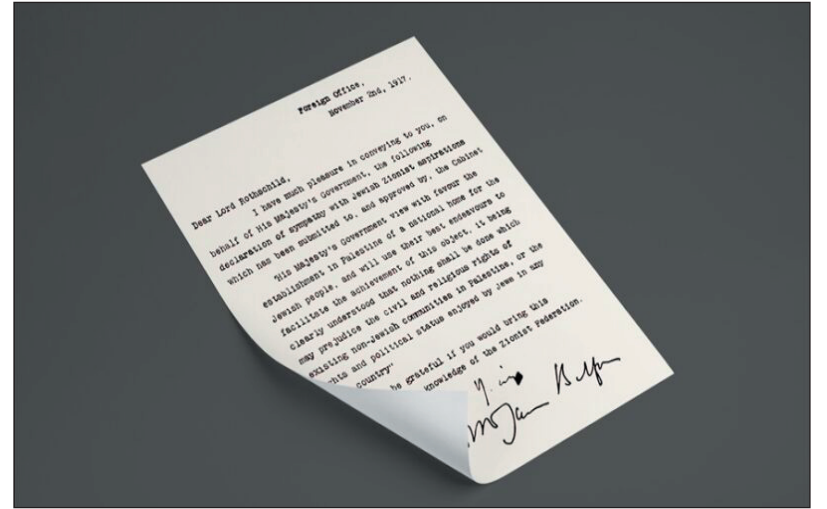 Foreign Office,
November 2nd, 1917.
Dear Lord Rothschild,
I have much pleasure in conveying to you, on
behalf of His Majesty's Government, the following
declaration of sympathy with Jewish Zionist aspirations
which has been submitted to, and approved by, the Cabinet
"His Majesty's Government view with favour the
establishment in Palestine of a national home for the
Jewish people, and will use their best endeavours to
facilitate the achievement of this object, it being
clearly understood that nothing shall be done which
may prejudice the civil and religious rights of
existing non-Jewish communities in Palestine, or the
hts and political status enjoyed by Jews in any
country"
be grateful if you would bring this
knowledge of the Zionist Federation.